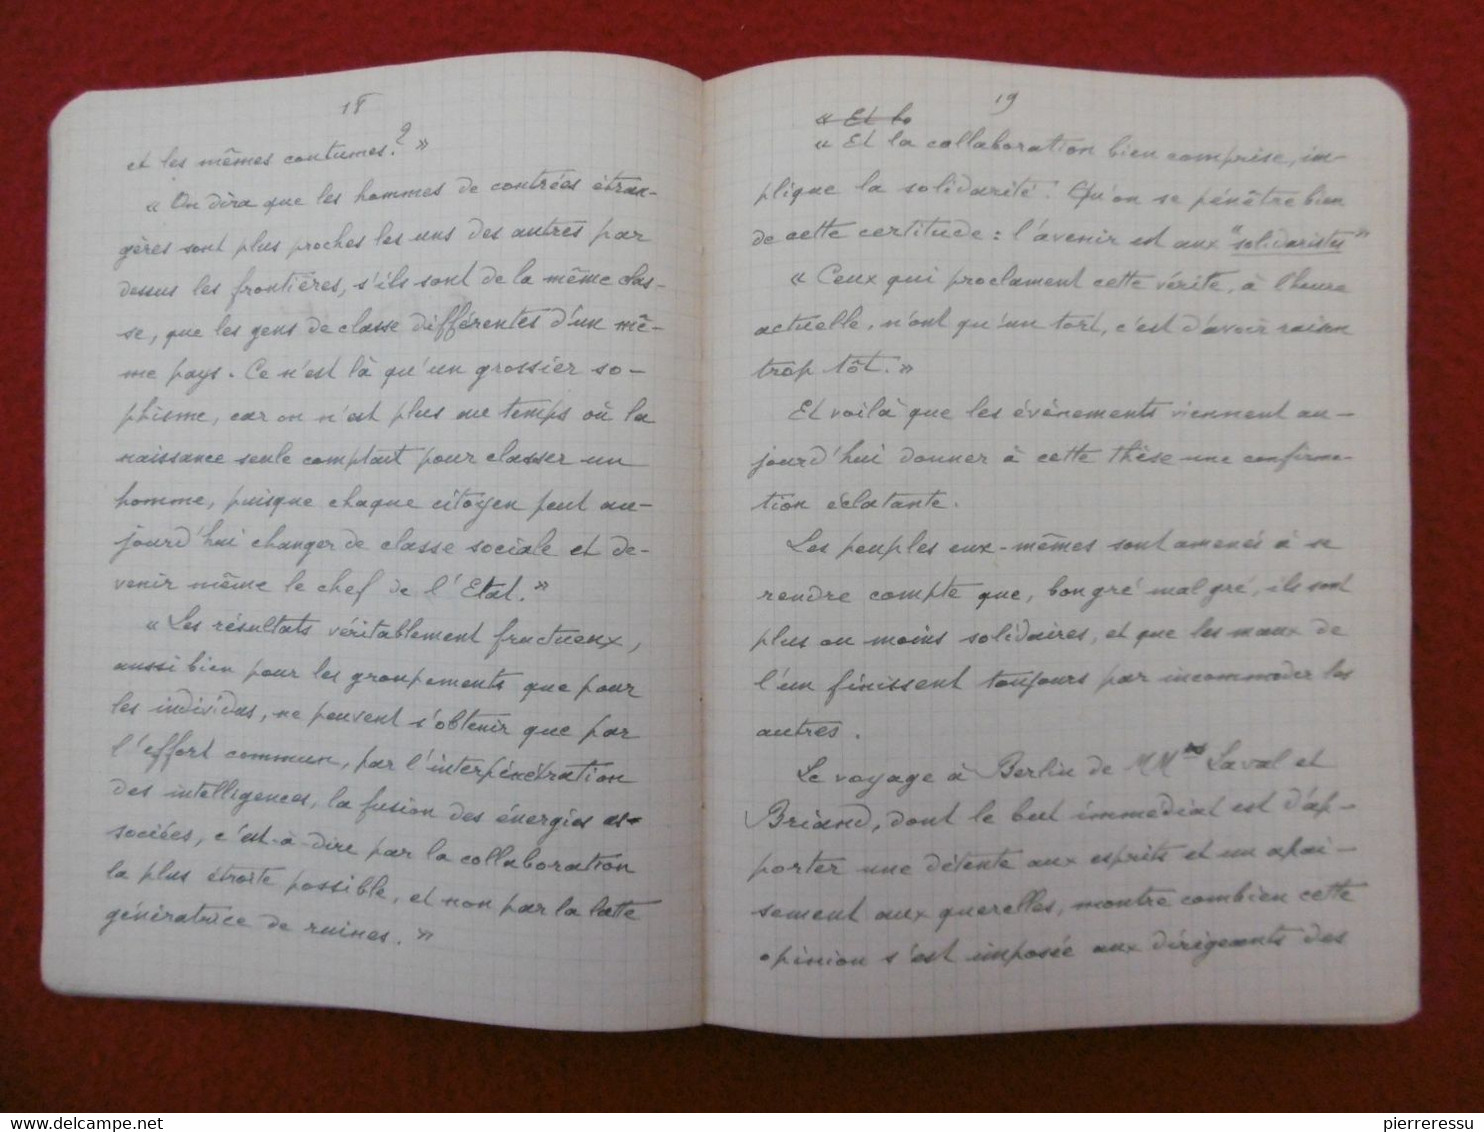 18
et les mêmes coutumes ? »
« On dira que les hommes de contrées étran-
gères sont plus proches les uns des autres par
dessus les frontières, s'ils sont de la même clas-
se, que les gens de classe différentes d'un mê-
me pays. Ce n'est là qu'un grossier so-
phisme, car on n'est plus au temps où la
naissance seule comptait pour classer un
homme, puisque chaque citoyen peut au-
jourd'hui changer de classe sociale et de-
venir même le chef de l'Etat. »
« Les résultats véritablement fructueux,
aussi bien pour les groupements que pour
les individus, ne peuvent s'obtenir que par
l'effort commun, par l'interpénétration
des intelligences, la fusion des énergies as-
sociées, c'est-à-dire par la collaboration
la plus étroite possible, et non par la lutte
génératrice de ruines. »
19
« Et la
« Et la collaboration bien comprise, im-
plique la solidarité ! Qu'on se pénètre bien
de cette certitude : l'avenir est aux "solidaristes"
« Ceux qui proclament cette vérité, à l'heure
actuelle, n'ont qu'un tort, c'est d'avoir raison
trop tôt. »
Et voilà que les évènements viennent au-
jourd'hui donner à cette thèse une confirma-
tion éclatante.
Les peuples eux-mêmes sont amenés à se
rendre compte que, bon gré mal gré, ils sont
plus ou moins solidaires, et que les maux de
l'un finissent toujours par incommoder les
autres.
Le voyage à Berlin de MM.rs Laval et
Briand, dont le but immédiat est d'ap-
porter une détente aux esprits et un apai-
sement aux querelles, montre combien cette
opinion s'est imposée aux dirigeants des
pierreressu
delcampe.net